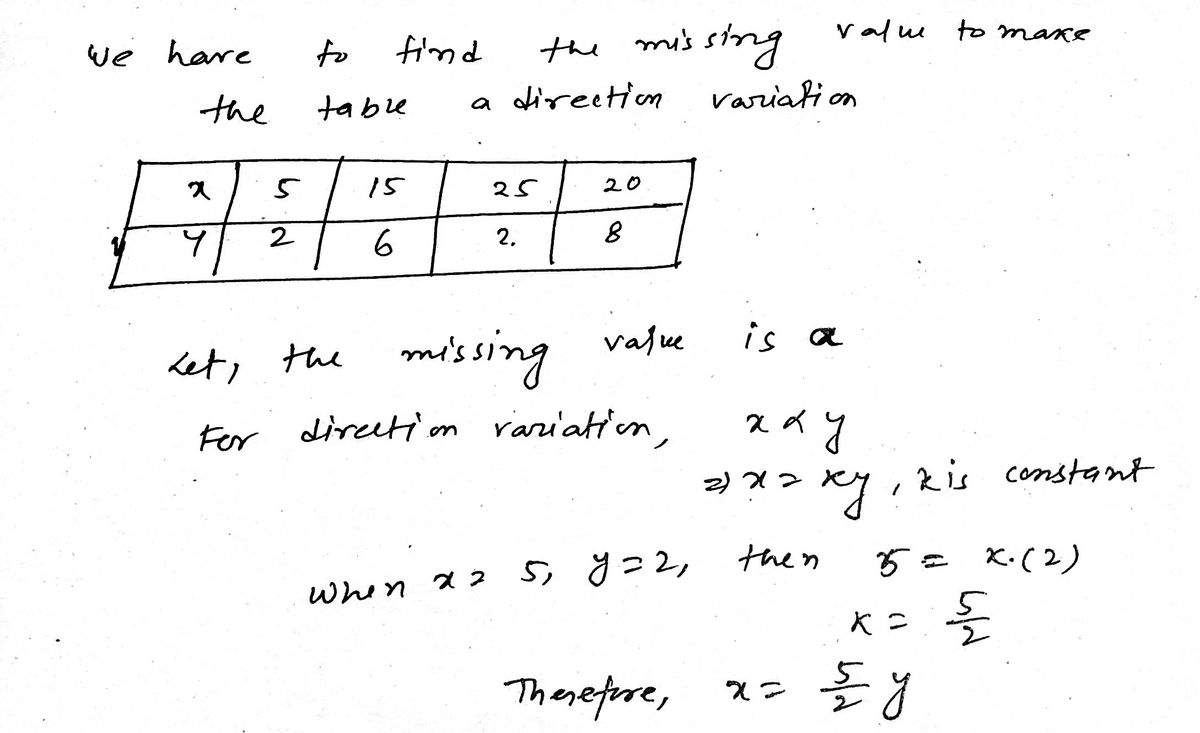 We have to find the missing value to make
the table a direction variation
x 5 15 25 20
y 2 6 2. 8
Let, the missing value is a
For direction variation, x ∝ y
⇒ x = ky, k is constant
when x = 5, y = 2, then 5 = k.(2)
k = 5/2
Therefore, x = 5/2 y